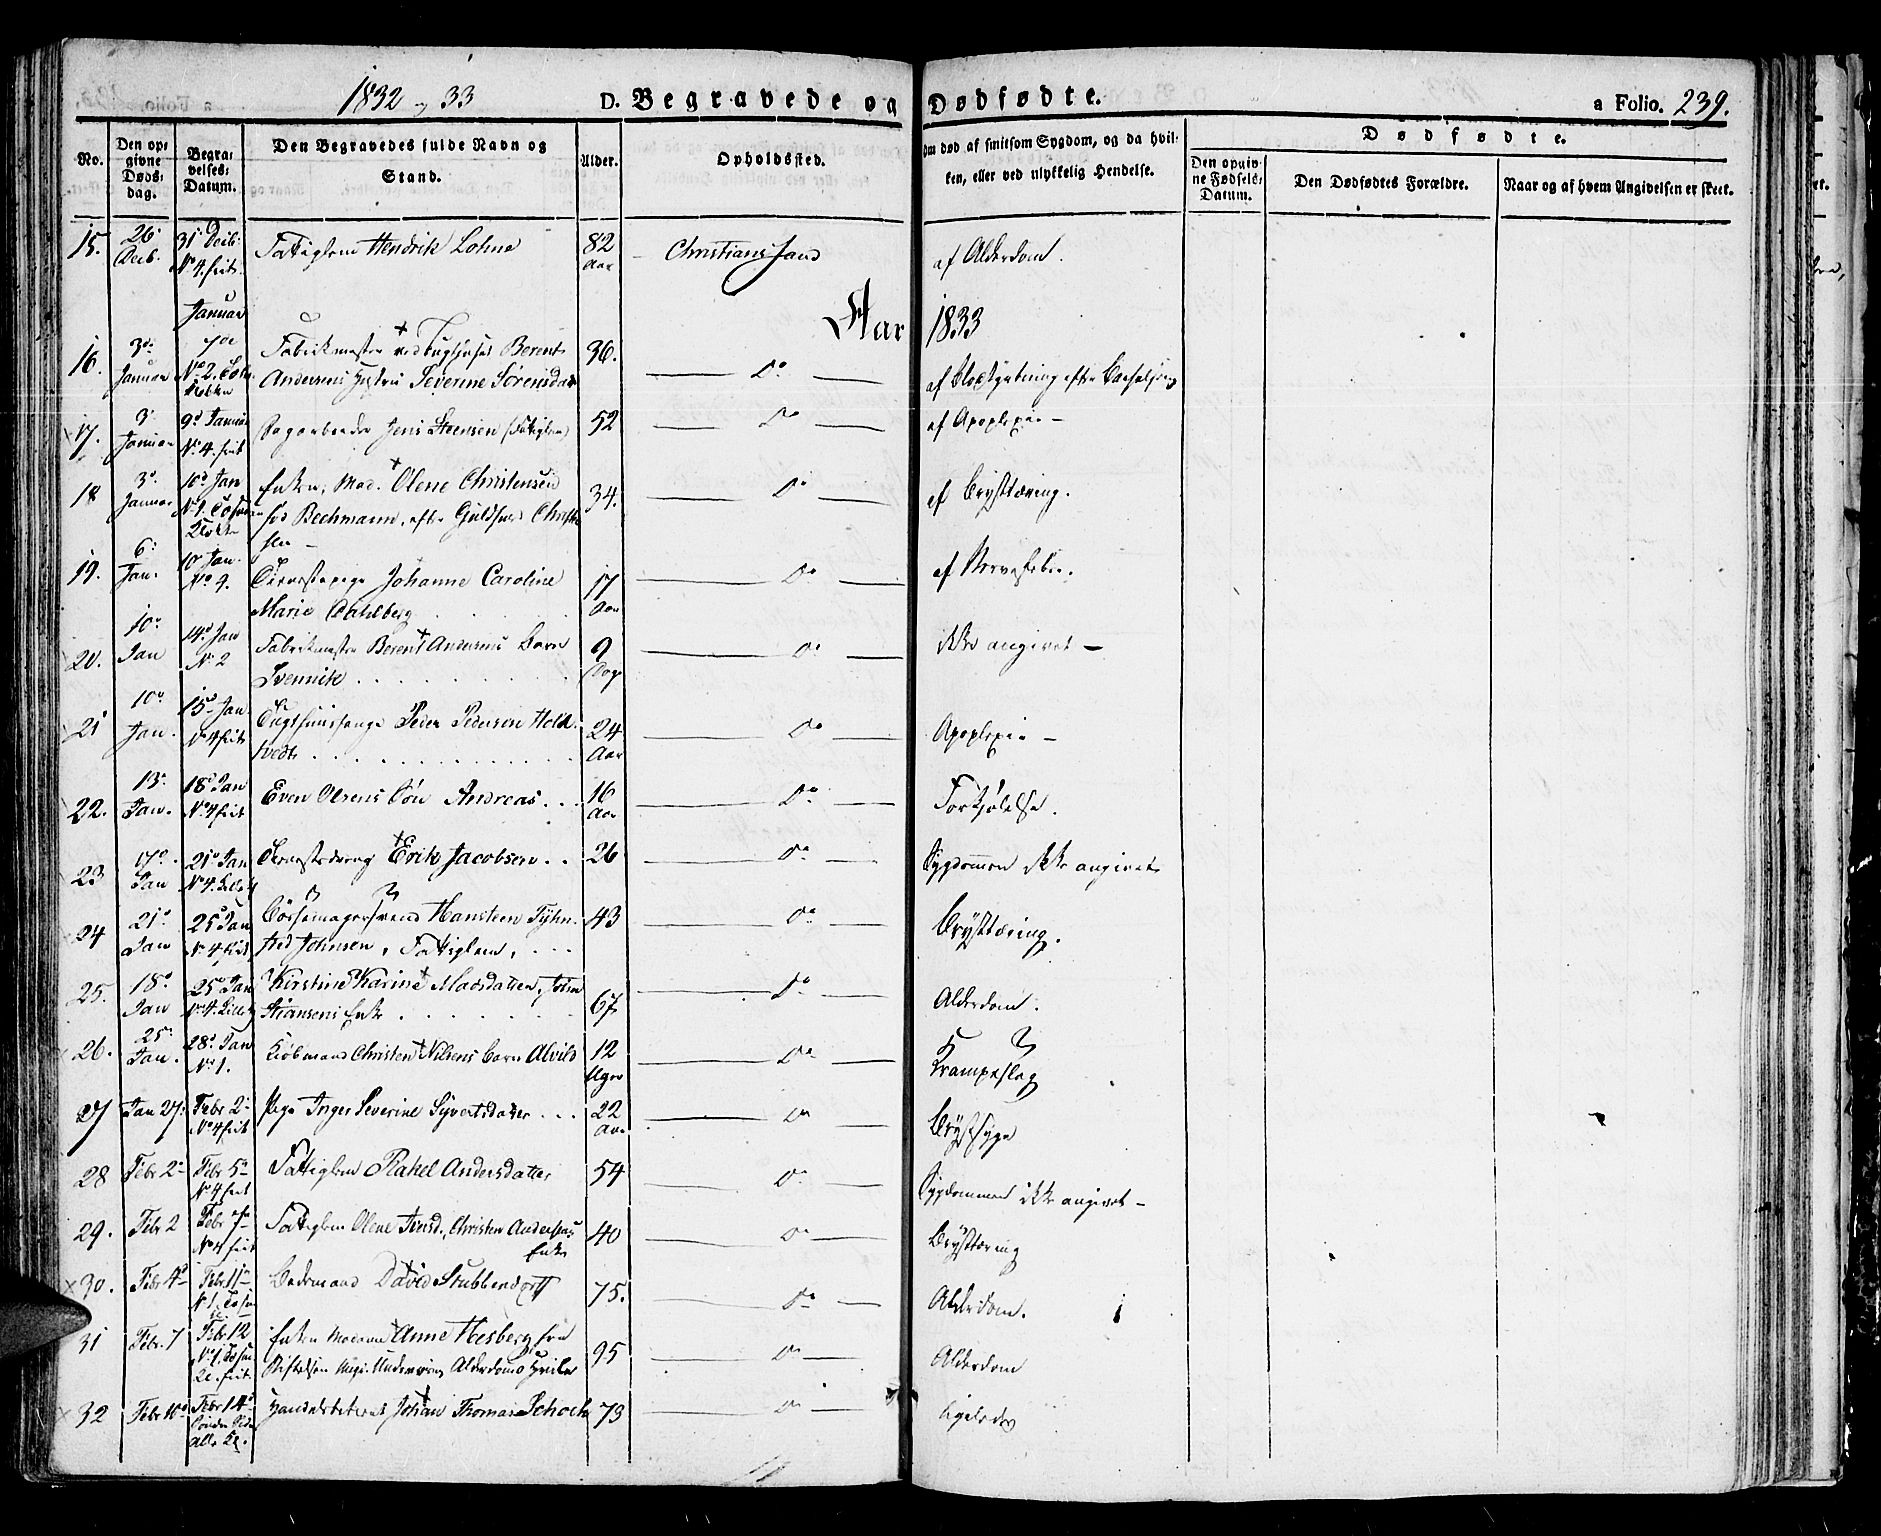 1832 og 33
D. Begravede og Dødfødte.
a Folio. 239.
No.
Den opgivne Dødsdag.
Begravelses-Datum.
Den Begravedes fulde Navn og Stand.
Alder.
Opholdssted.
Om død af smitsom Sygdom, og da hvilken, eller ved ulykkelig Hendelse.
Dødfødte.
Den opgivne Fødsels-Datum.
Den Dødfødtes Forældre.
Naar og af hvem Angivelsen er skeet.
15. 26 Decb. 31 Decb. No 4. frit. Fattiglem Hendrik Lohne 82 Aar Christianssand af Alderdom.
Januar
Aar 1833
16. 3 Januar 7de No 2. Fabrikmester ved Tugthuset Berent
Andersens Hustru Severine Sørensdat 36. Do af efter Barselseng
17. 3 Januar 9 Januar No 4. frit Jens Steensen (Fattiglem) 52 Do af Apoplexie –
18 3 Januar 10 Jan No 1. Enken, Mad. Olene Christensen
fød Bechmann, efter Guldsmed Christen
sen – 34. Do af Brysttæring.
19. 6 Jan. 10 Jan. No 4. Tienestepige Johanne Caroline
Marie Dahlberg 17 Aar Do af Nervefeber.
20. 10 Jan 14 Jan No 2 Fabrikmester Berent Andersens Barn
Svennik 9 Dage Do ikke angivet –
21 10 Jan. 15 Jan No 4 frit Tugthuusfange Peder Pedersen Hold-
tvedt 24 Aar Do Apoplexie –
22. 13 Jan. 18 Jan No 4 frit Even Olsens Søn Andreas 16 Aar Do Forkjølelse.
23 17 Jan 21 Jan No 4. Tienestedreng Erik Jacobsen 26 Do Sygdommen ikke angivet
24 21 Jan 25 Jan No 4 frit Bøssemagersvend Hansteen Tyhn-
sted Johnsen, Fattiglem, 43 Do Brysttæring.
25. 18 Jan 25 Jan No 4. Kirstine Karine Madsdatter, John
Hansens Enke 67 Do Alderdom.
26. 25 Jan. 28 Jan No 1. Kiøbmand Christen Nilsens Barn Alvild 12 Uger Do Krampeslag
27 Jan 27 Febr 2 No 4 frit Pige Inger Severine Syvertsdatter 22 Aar Do Brystsyge
28 Febr 2 Febr 5 No 4 frit Fattiglem Rakel Andersdatter 54 Do Sygdommen ikke angivet –
29. Febr 2 Febr 7 No 4 frit Fattiglem Olene Jensd., Christen Andersens
Enke 40 Do Brysttæring
30. Febr 4 Febr 11 No 1. Bademand David Stubbendorff 75. Do Alderdom.
31 Febr. 7 Febr 12 No 1. Enken Madame Anne Hesberg fra
Stiftelsen Alderdoms Hvile 95 Do Alderdom
32 Febr 10 Febr 14 Johan Thomas Schock 73 Do Ligeledes